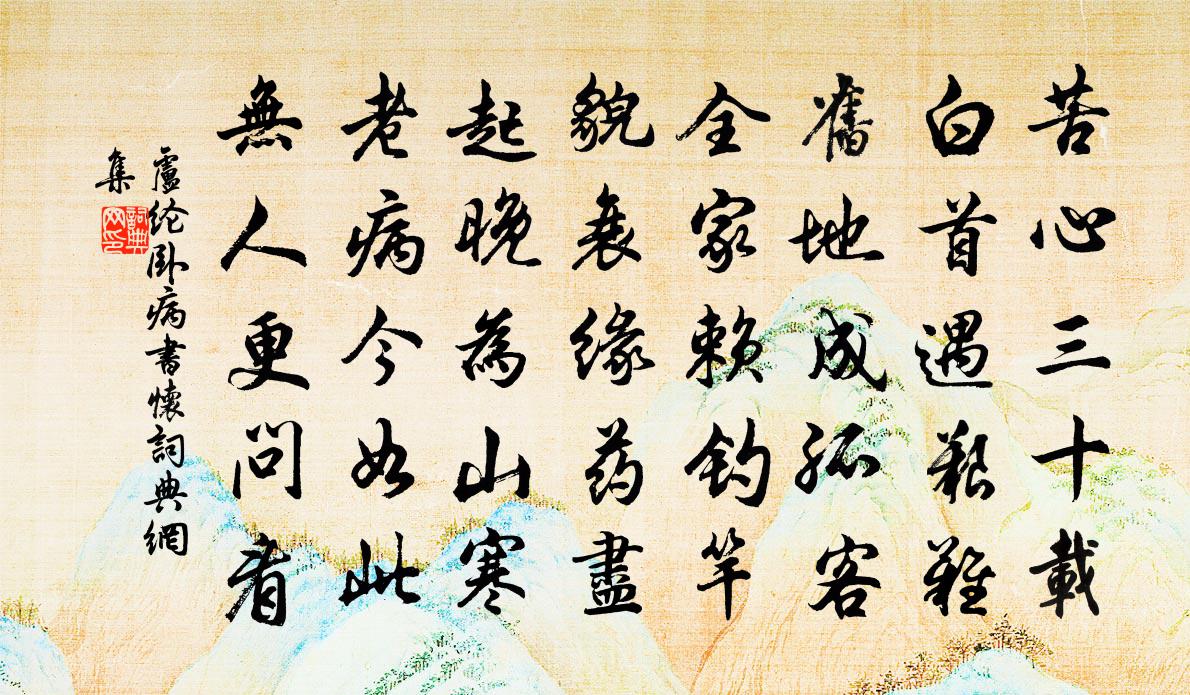 苦心三十載
白首遇艱難
舊地成孤客
全家賴釣竿
貌衰緣药盡
起晚為山寒
老病今如此
無人更問看
盧纶卧病書懷詞典網
集
詞典
网印